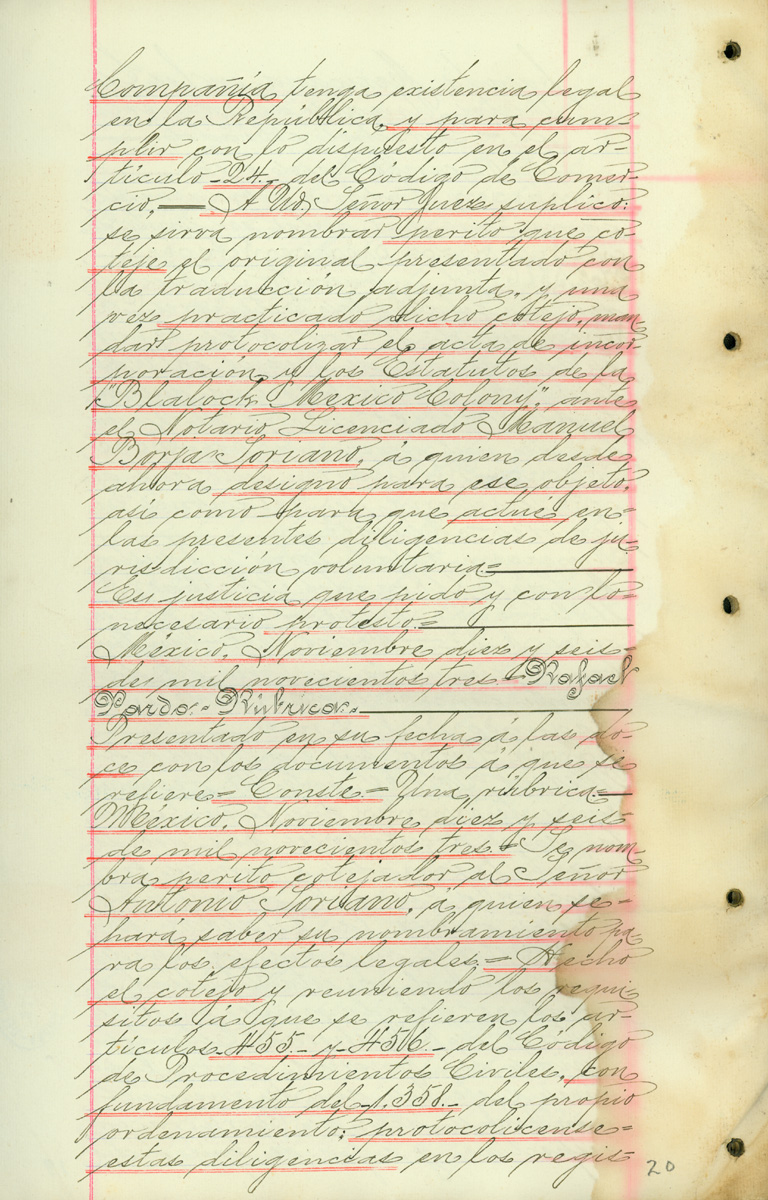 Compañía tenga existencia legal
en la República, y para cum-
plir con lo dispuesto en el ar-
tículo -24- del Código de Comer-
cio, — A Ud, Señor Juez suplico:
se sirva nombrar perito que co-
teje el original presentado con
la traducción adjunta, y una
vez practicado dicho cotejo, man-
dar protocolizar el acta de incor-
poración y los Estatutos de la
"Blalock Mexico Colony," ante
el Notario Licenciado Manuel
Borja Soriano, á quien desde
ahora designo para ese objeto,
así como para que actué en-
las presentes diligencias de ju-
risdicción voluntaria=
Es justicia que pido y con lo-
necesario protesto.=
México, Noviembre diez y seis-
de mil novecientos tres.= Rafael
Pardo.- Rúbrica.-
Presentado en su fecha á las do-
ce con los documentos á que se
refiere= Conste= Una rúbrica=
México, Noviembre diez y seis-
de mil novecientos tres.= Se nom-
bra perito cotejador al Señor
Antonio Soriano, á quien se-
hará saber su nombramiento pa-
ra los efectos legales.= Hecho
el cotejo y reuniendo los requi-
sitos á que se refieren los ar-
tículos -455- y -456- del Código
de Procedimientos Civiles, con
fundamento del -1,358- del propio
ordenamiento; protocolicense=
estas diligencias en los regis-
20